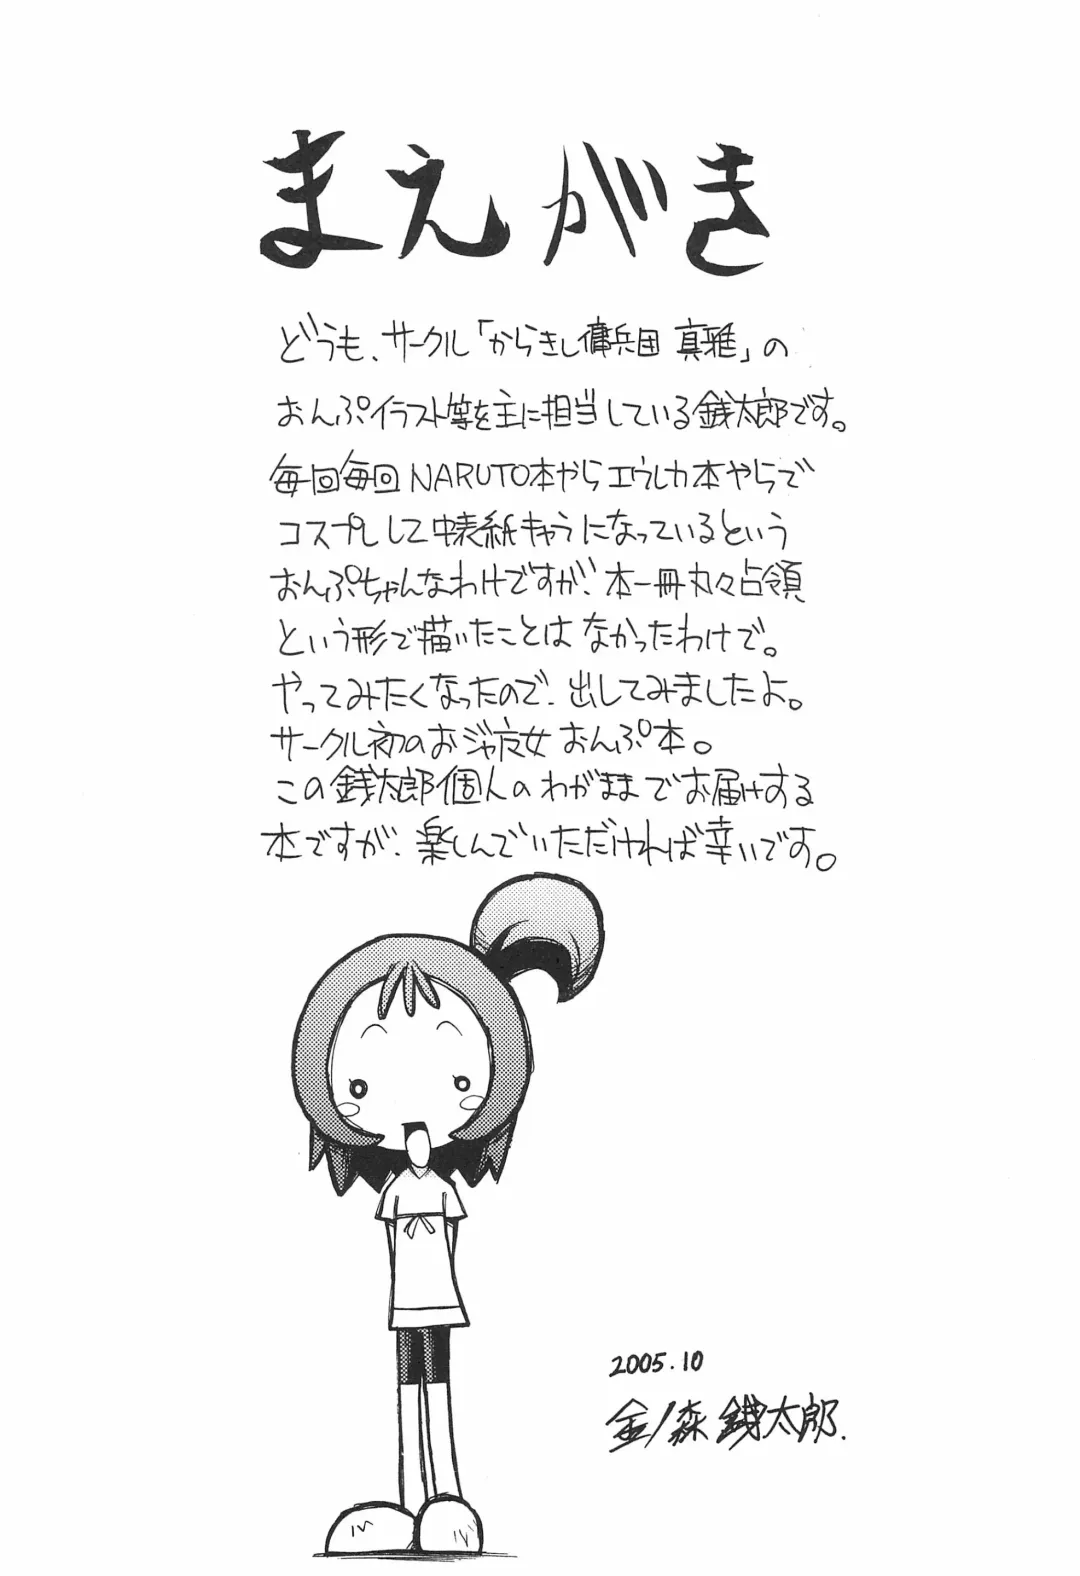 まえがき
どうも、サークル「からきし傭兵団 真雅」の
おんぷイラスト等を主に担当している銭太郎です。
毎回毎回NARUTO本やらエウレカ本やらで
コスプレして中表紙キャラになっているという
おんぷちゃんなわけですが、本一冊丸々占領
という形で描いたことはなかったわけで。
やってみたくなったので、出してみましたよ。
サークル初のおジャ魔女おんぷ本。
この銭太郎個人のわがままでお届けする
本ですが、楽しんでいただければ幸いです。
2005.10
金ノ森銭太郎.